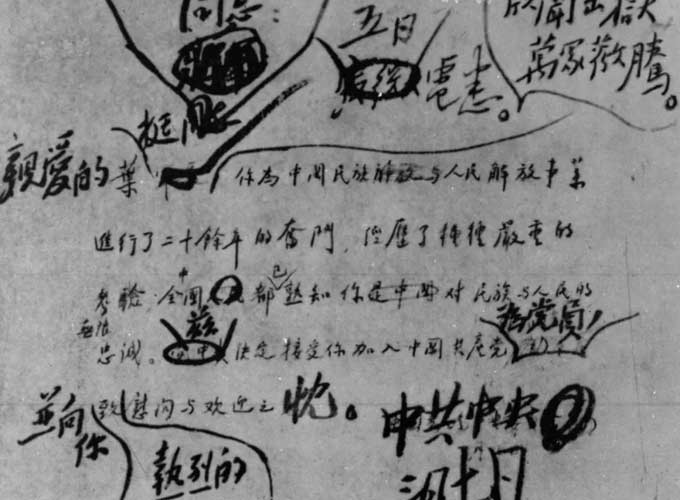 同志：
五日
電悉。
欣聞出獄
萬衆歡騰。
挺同志
親愛的葉
你為中国民族解放与人民解放事業
進行了二十餘年的奮鬥，經歷了種種嚴重的
考驗，全中国都已熟知你是中国对民族与人民的
無限忠誠。茲决定接受你加入中国共産党為党員，
並向你致熱烈的慰问与欢迎之忱。
中共中央
三月七日